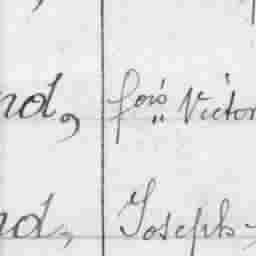 nd, fois „ Victor
nd, Joseph-